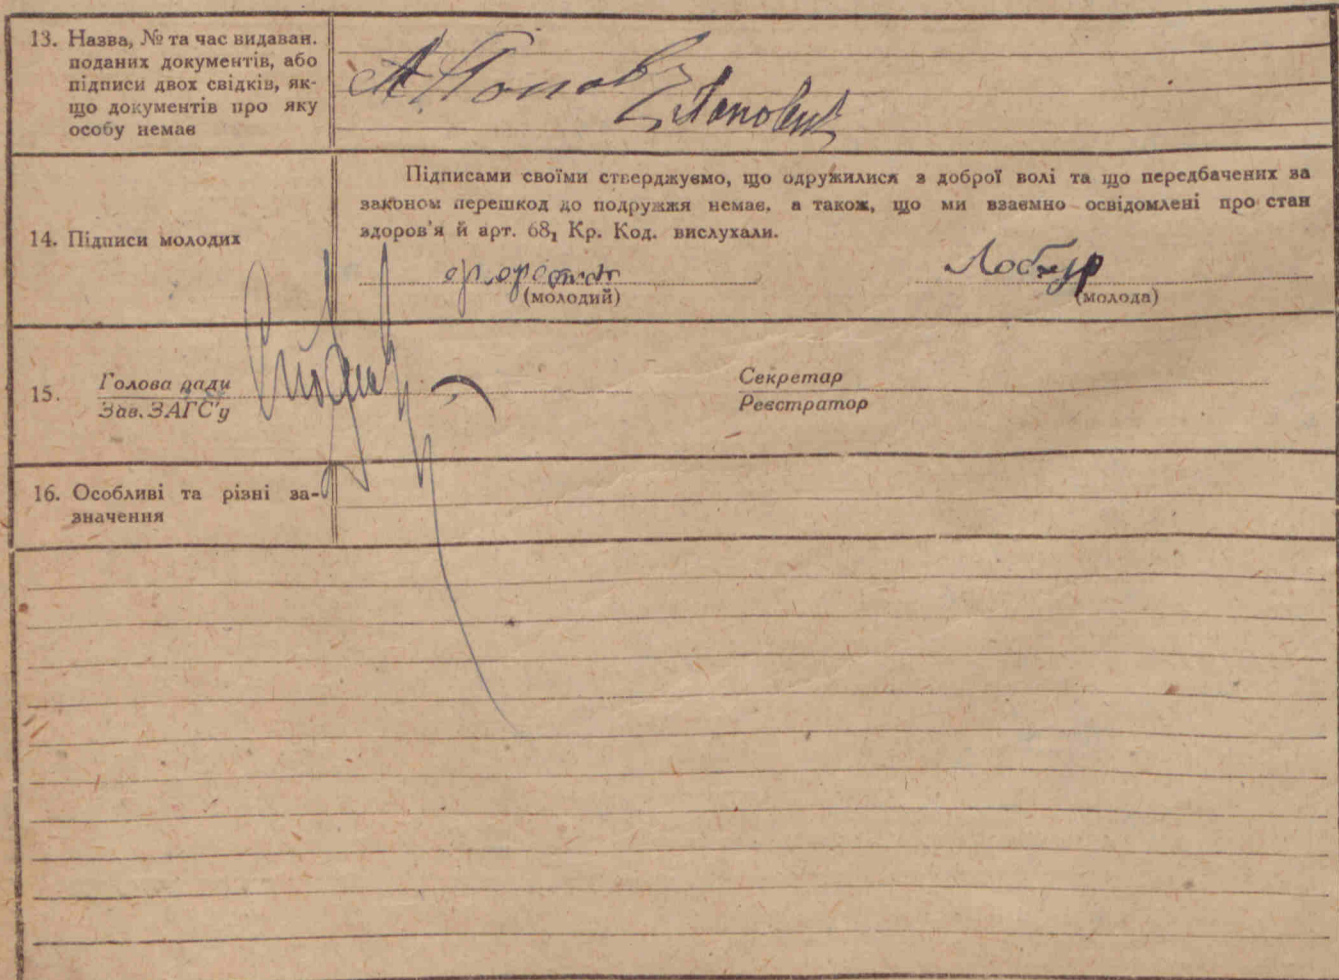 13. Назва, № та час видаван.
поданих документів, або
підписи двох свідків, як-
що документів про яку
особу немає
А. Попов
14. Підписи молодих
Підписами своїми стверджуємо, що одружилися з доброї волі та що передбачених за
законом перешкод до подружжя немає, а також, що ми взаємно освідомлені про стан
здоров'я й арт. 68₁ Кр. Код. вислухали.
(молодий)
(молода)
15.
Голова ради
Зав. ЗАГС'у
Секретар
Реєстратор
16. Особливі та різні за-
значення